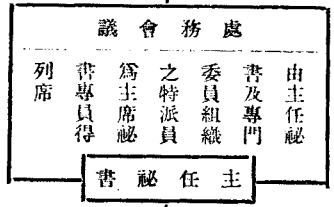 處務會議
由主任祕
書及專門
委員組織
之特派員
爲主席祕
書專員得
列席
主任祕書